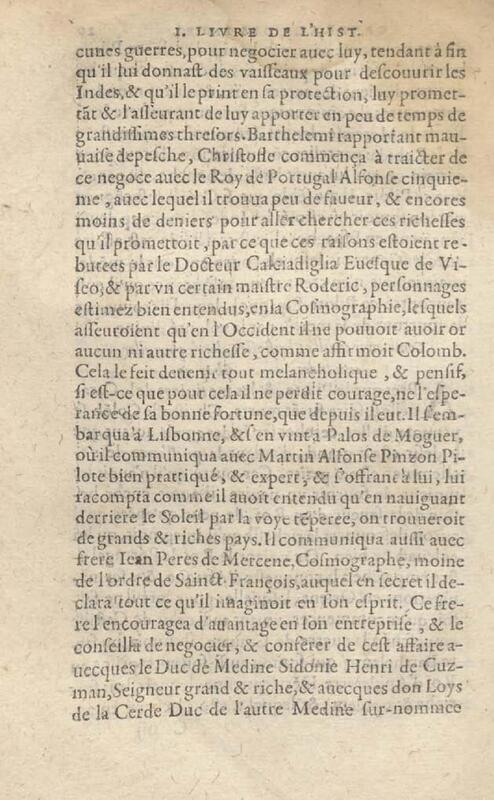 I. LIVRE DE L'HIST.
cunes guerres, pour negocier auec luy, tendant à fin
qu'il lui donnast des vaisseaux pour descouurir les
Indes, & qu'il le print en sa protection, luy promet-
tãt & l'asseurant de luy apporter en peu de temps de
grandissimes thresors. Barthelemi rapportant mau-
uaise depesche, Christofle commença à traicter de
ce negoce auec le Roy de Portugal Alfonse cinquie-
me, auec lequel il trouua peu de faueur, & encores
moins de deniers pour aller chercher ces richesses
qu'il promettoit, par ce que ces raisons estoient re-
butees par le Docteur Calciadiglia Euesque de Vi-
seo, & par vn certain maistre Roderic, personnages
estimez bien entendus, en la Cosmographie, lesquels
asseuroient qu'en l'Occident il ne pouuoit auoir or
aucun ni autre richesse, comme affirmoit Colomb.
Cela le feit deuenir tout melancholique, & pensif,
si est-ce que pour cela il ne perdit courage, ne l'espe-
rance de sa bonne fortune, que depuis il eut. Il s'em-
barqua à Lisbonne, & s'en vint à Palos de Moguer,
où il communiqua auec Martin Alfonse Pinzon Pi-
lote bien prattiqué, & expert, & s'offrant à lui, lui
racompta comme il auoit entendu qu'en nauiguant
derriere le Soleil par la voye tẽperee, on trouueroit
de grands & riches pays. Il communiqua aussi auec
frere Iean Peres de Mercene, Cosmographe, moine
de l'ordre de Sainct François, auquel en secret il de-
clara tout ce qu'il imaginoit en son esprit. Ce fre-
re l'encouragea d'auantage en son entreprise, & le
conseilla de negocier, & conferer de cest affaire a-
uecques le Duc de Medine Sidonie Henri de Cuz-
man, Seigneur grand & riche, & auecques don Loys
de la Cerde Duc de l'autre Medine sur-nommee